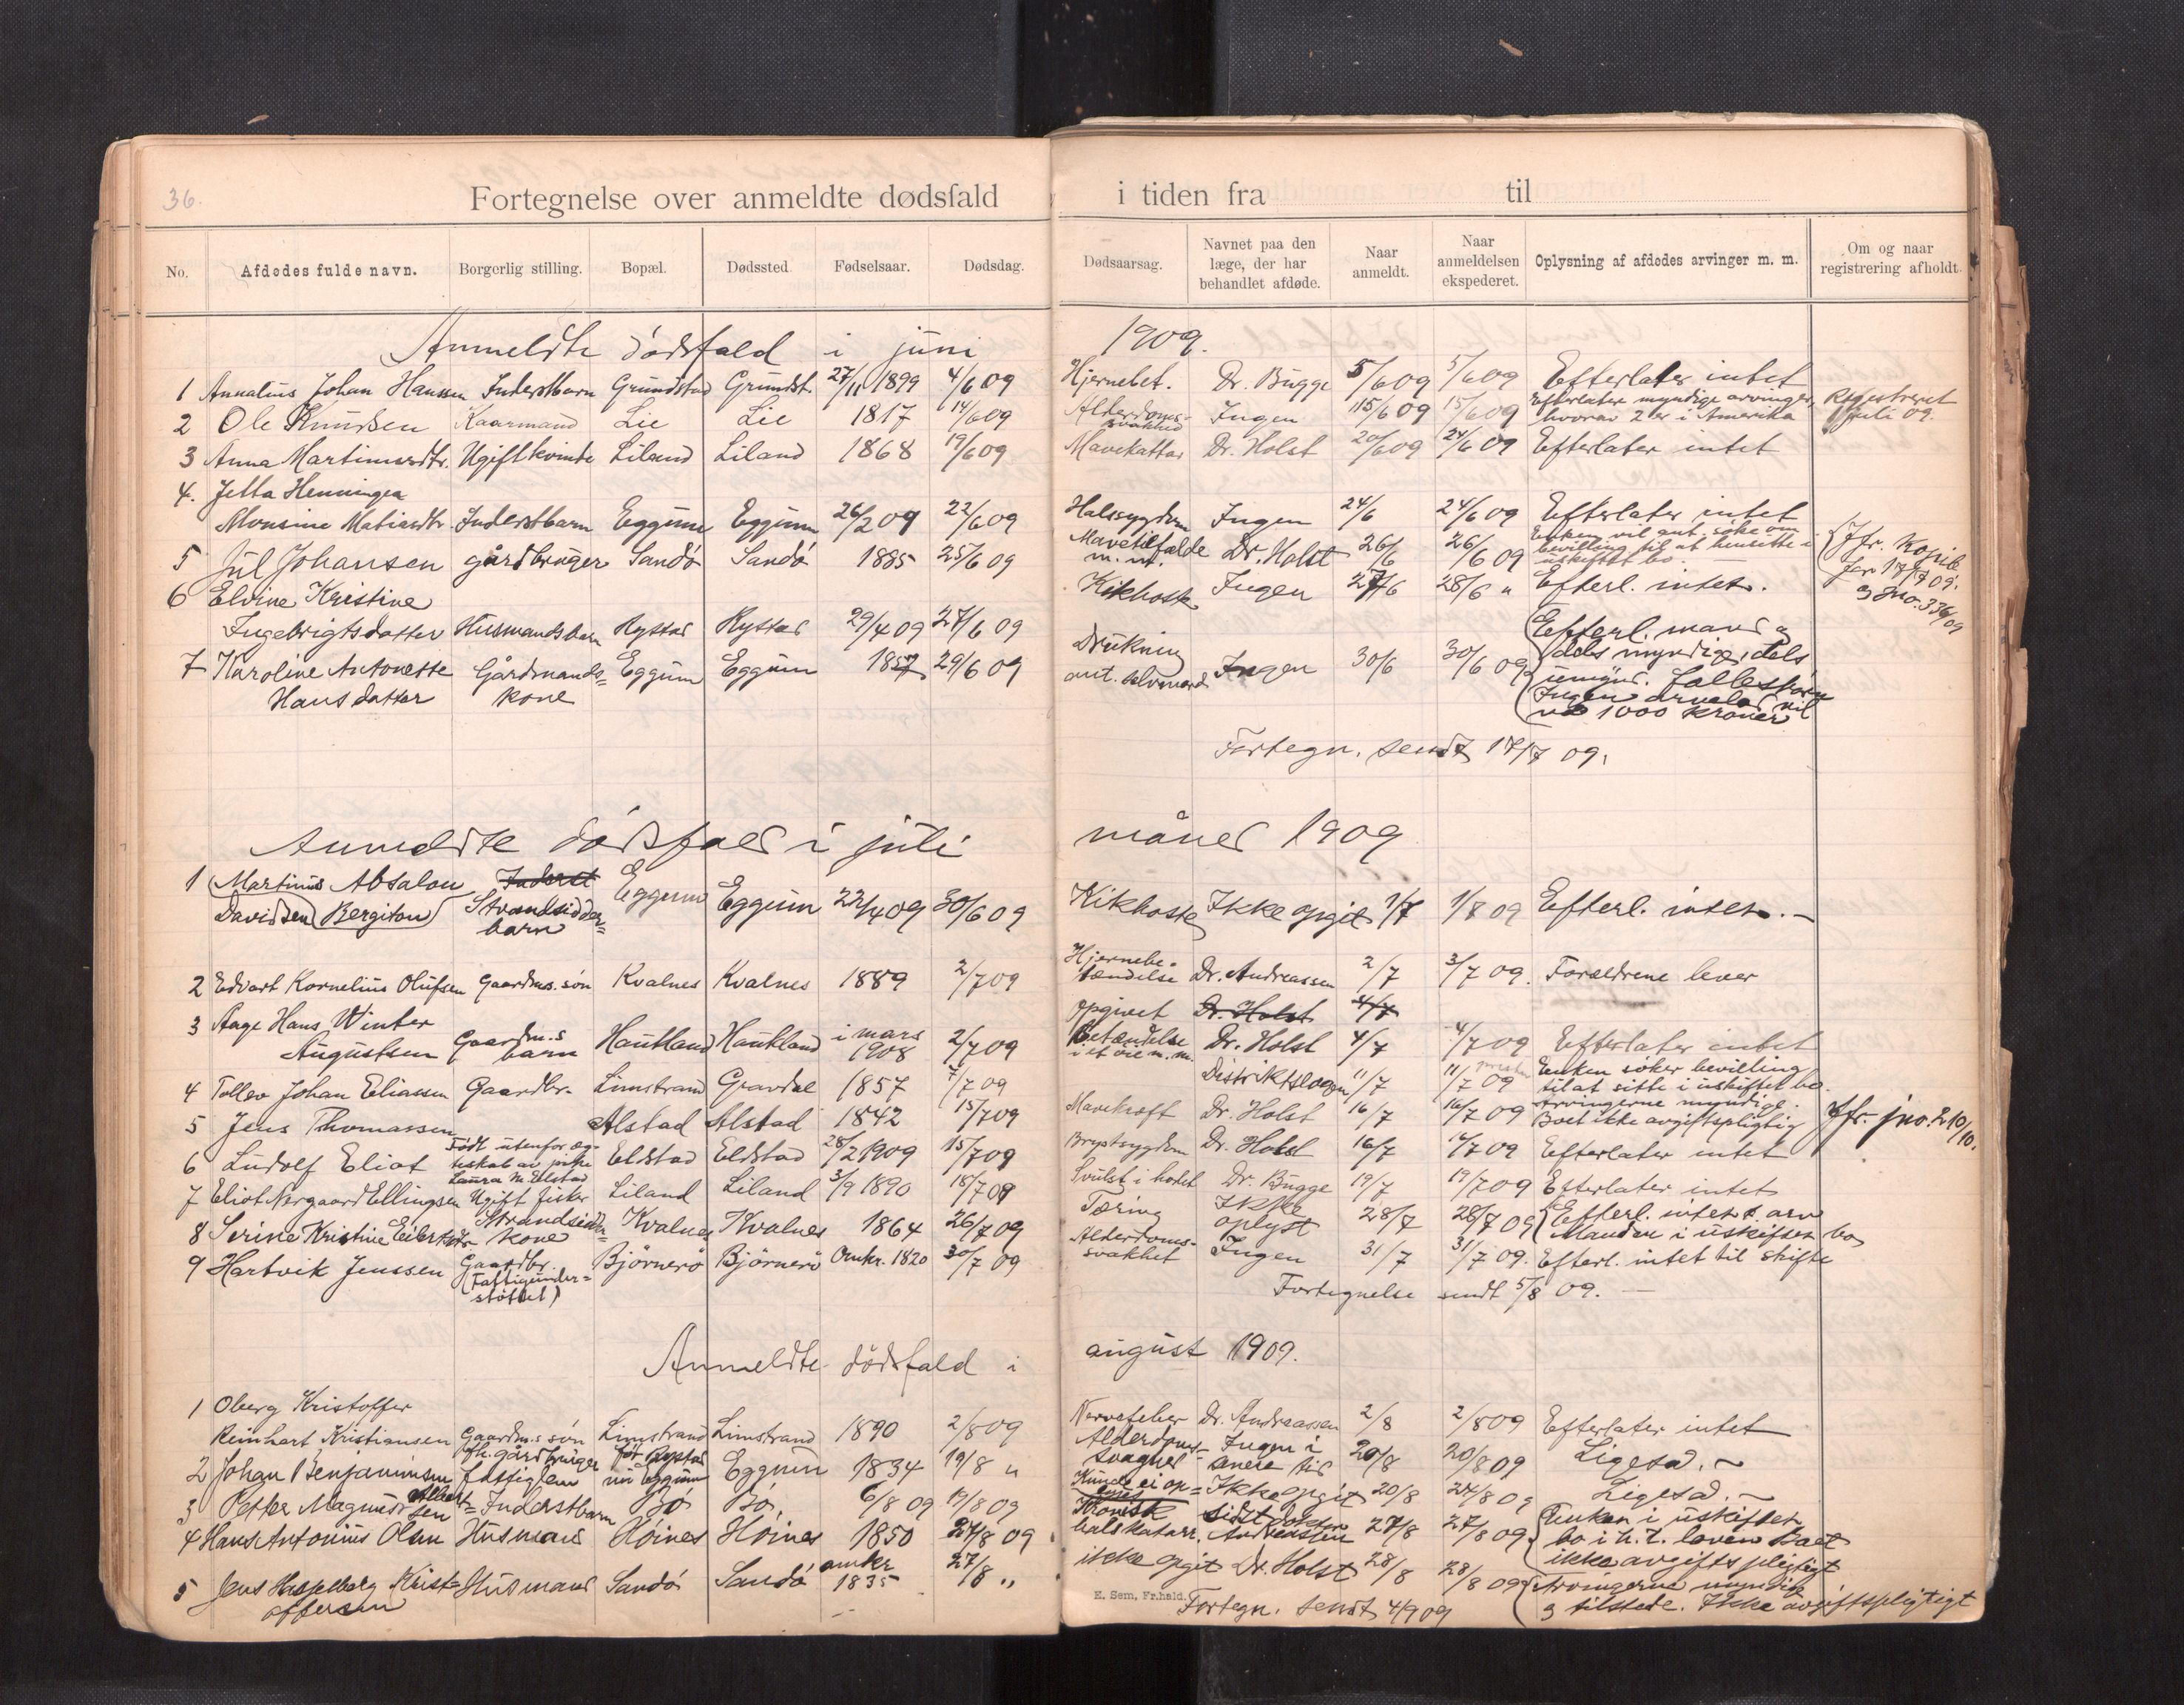 36.
Fortegnelse over anmeldte dødsfald i tiden fra til
No. Afdødes fulde navn. Borgerlig stilling. Bopæl. Dødssted. Fødselsaar. Dødsdag. Dødsaarsag. Navnet paa den læge, der har behandlet afdøde. Naar anmeldt. Naar anmeldelsen ekspederet. Oplysning af afdødes arvinger m. m. Om og naar registrering afholdt.
Anmeldte dödsfald i juni 1909.
1 Annalius Johan Hanssen Inderstbarn Grundstad Grundst. 27/11 1899 4/6 09 Hjernebet. Dr. Bugge 5/6 09 5/6 09 Efterlater intet
2 Ole Knudsen Kaarmand Lie Lie 1817 14/6 09 Alderdoms- svakhed Ingen 15/6 09 15/6 09 Efterlater myndige arvinger, hvorav 2 er i Amerika Registreret juli 09.
3 Anna Martinusdtr. Ugift kvinde Liland Liland 1868 19/6 09 Mavekattar Dr. Holst 20/6 09 24/6 09 Efterlater intet
4. Jetta Henningea
Monsine Matiasdtr. Inderstbarn Eggum Eggum 26/2 09 22/6 09 Halssygdom Ingen 24/6 24/6 09 Efterlater intet
5 Jul Johansen gårdbruger Sandö Sandö 1885 25/6 09 Mavetilfælde m. m. Dr. Holst 26/6 26/6 09 Enken vil ant. söke om bevilling til at hensitte i uskiftet bo. Jfr. Kopib. for 17/7 09. og jno. 336/09
6 Elvine Kristine
Ingebrigtsdatter Husmandsbarn Rystad Rystad 29/4 09 27/6 09 Kikhoste Ingen 27/6 28/6 " Efterl. intet.
7 Karoline Antonette Gårdmands= Eggum Eggum 1857 29/6 09 Drukning Ingen 30/6 30/6 09 Efterl. mand og dels myndige, dels
Hansdatter kone ant. selvmord umynd. fællesbarn
Ingen arvelod vil
nå 1000 kroner
Fortegn. sendt 17/7 09.
Anmeldte dödsfald i juli måned 1909
1 Martinus Absalon Inderst Eggum Eggum 22/4 09 30/6 09 Kikhoste Ikke opgit 1/7 1/7 09 Efterl. intet.-
Davidsen (Bergiton) Strandsidder= barn
2 Edvart Kornelius Olufsen Gaardms. sön Kvalnes Kvalnes 1889 2/7 09 Hjernebe- tændelse Dr. Andreassen 2/7 3/7 09. Forældrene lever
3 Aage Hans Winter opgivet Dr. Holst 4/7
Augustsen Gaardm.s barn Haukland Haukland i mars 1908 2/7 09 Betændelse i et öre m. m. Dr. Holst 4/7 4/7 09 Efterlater intet
4 Tollev Johan Eliassen Gaardbr. Limstrand Gravdal 1857 7/7 09 Distriktslægen 11/7 11/7 09 Enken söker bevilling til at sitte i uskiftet bo.
5 Jens Thomassen Alstad Alstad 1842 15/7 09 Mavekræft Dr. Holst 16/7 16/7 09 Arvingerne myndige. Boet ikke avgiftspligtig Jfr. jno. 210/10.
6 Ludolf Eliot Födt utenfor æg- teskab av pike Laura M. Elstad Eldstad Eldstad 28/2 1909 15/7 09 Brystsygdom Dr. Holst 16/7 16/7 09 Efterlater intet
7 Eliot Norgaard Ellingsen Ugift fisker Liland Liland 3/9 1890 18/7 09 Svulst i hodet Dr. Bugge 19/7 19/7 09 Efterlater intet
8 Serine Kristine Eilertsdtr Strandsidder= kone Kvalnes Kvalnes 1864 26/7 09 Tæring Ikke oplyst 28/7 28/7 09 Efterl. intet t. arv Manden i uskiftet bo
9 Hartvik Jenssen Gaardbr. (Fattigunder= stöttet) Björnerö Björnerö Omkr. 1820 30/7 09 Alderdoms- svakhet Ingen 31/7 31/7 09. Efterl. intet til skifte
Fortegnelse sendt 5/8 09. -
Anmeldte dödsfald i august 1909.
1 Oberg Kristoffer
Reinhart Kristiansen Gaardm.s sön Limstrand Limstrand 1890 2/8 09 Nervefeber Dr. Andreassen 2/8 2/8 09 Efterlater intet
2 Johan Benjaminsen fh. gårdbruger fattiglem för Rystad nu Eggum Eggum 1834 19/8 " Alderdoms- svaghet Ingen i senere tid 20/8 20/8 09 Ligeså.-
3 Petter Magnus Albert= sen Inderstbarn Bö Bö 6/8 09 19/8 09 Kunde ei op= gives Ikke opgit 20/8 24/8 09 Ligeså.-
4 Hans Antonius Olsen Husmand Höines Höines 1850 27/8 09 Kronisk halskatarr. sidst doktor Andreassen 27/8 27/8 09 Enken i uskiftet bo i h. t. loven Boet ikke avgiftspligtigt
5 Jens Hasselberg Krist= offersen Husmand Sandö Sandö omkr 1835 27/8 " ikke opgit Dr. Holst 28/8 28/8 09 Arvingerne myndige og tilstede. Ikke avgiftspligtigt
E. Sem, Fr.hald. Fortegn. sendt 4/9 09